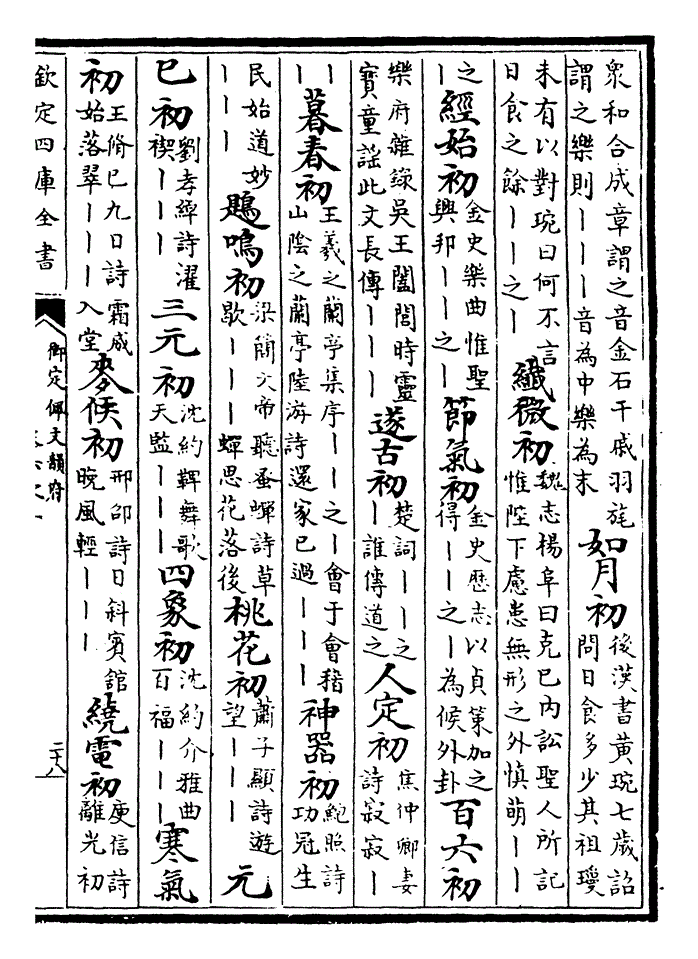 衆和合成章謂之音金石干戚羽旄
謂之樂則丨丨丨音為中樂為末
如月初
後漢書黃琬七歲詔
問日食多少其祖瓊
未有以對琬曰何不言
日食之餘丨丨之丨
纖微初
魏志楊阜曰克已内訟聖人所記
惟陛下慮患無形之外慎萌丨丨
之
丨
經始初
金史樂曲惟聖
興邦丨丨之丨
節氣初
金史歴志以貞策加之
得丨丨之丨為候外卦
百六初
樂府雜錄吳王闔閭時靈
寶童謡此文長傳丨丨丨
遂古初
楚詞丨丨之
丨誰傳道之
人定初
焦仲卿妻
詩寂寂丨
丨
丨
暮春初
王羲之蘭亭集序丨丨之丨會于會稽
山陰之蘭亭陸游詩還家已過丨丨丨
神器初
鮑照詩
功冠生
民始道妙
丨丨丨
鶗鳴初
梁簡文帝聽蚤蟬詩草
歇丨丨丨蟬思花落後
桃花初
蕭子顯詩遊
望丨丨丨
元
巳初
劉孝綽詩濯
禊丨丨丨
三元初
沈約鞞舞歌
天監丨丨丨
四象初
沈約介雅曲
百福丨丨丨
寒氣
初
王脩已九日詩霜威
始落翠丨丨丨入堂
麥候初
邢邵詩日斜賓館
晚風輕丨丨丨
繞電初
庾信詩
離光初
欽定四庫全書
御定佩文韻府
二十八